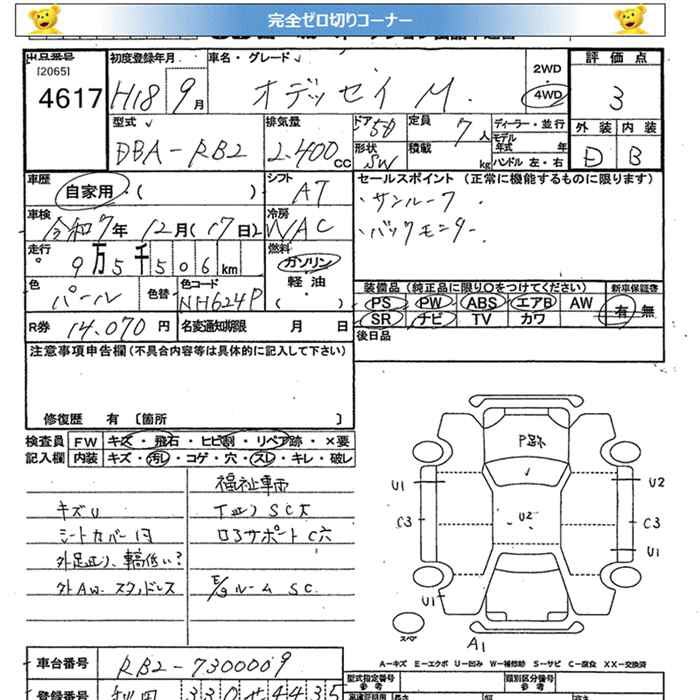 完全ゼロ切りコーナー
[2065]
4617
初度登録年月
H18 9月
車名・グレード
オデッセイ M.
2WD
4WD
評価点
3
外装 内装
D B
型式
DBA-RB2
排気量
2.400 CC
ドア 5D
形状 SW
定員 7人
積載 kg
ディーラー・並行
モデル年式 年
ハンドル 左・右
車歴
自家用・( )
シフト AT
セールスポイント (正常に機能するものに限ります)
・サンルーフ
・バックモニター
車検
令和7年 12月(17日)
冷房 WAC
走行
9万5千506km
燃料
ガソリン
軽油
・( )
色 パール
色替
色コード NH624P
装備品(純正品に限り○をつけてください)
新車保証書
PS PW ABS エアB AW
SR ナビ TV カワ
有・無
R券 14.070円
名変通知期限 月 日
後日品
注意事項申告欄(不具合内容等は具体的に記入して下さい)
修復歴 有 〔箇所 〕
検査員 FW キズ・飛石・ヒビ割・リペア跡・×要
記入欄 内装 キズ・汚レ・コゲ・穴・スレ・キレ・破レ
福祉車両
キズU
シートカバー
下廻りSC大
ロアサポートC穴
外AW.スタッドレス
E/gルームSC.
U1
U2
C3
U2
C3
U1
U1
スペア
A1
A-キズ E-エクボ U-凹み W-補修跡 S-サビ C-腐食 XX-交換済
車台番号 RB2-7300009
型式指定番号
類別区分番号
登録番号